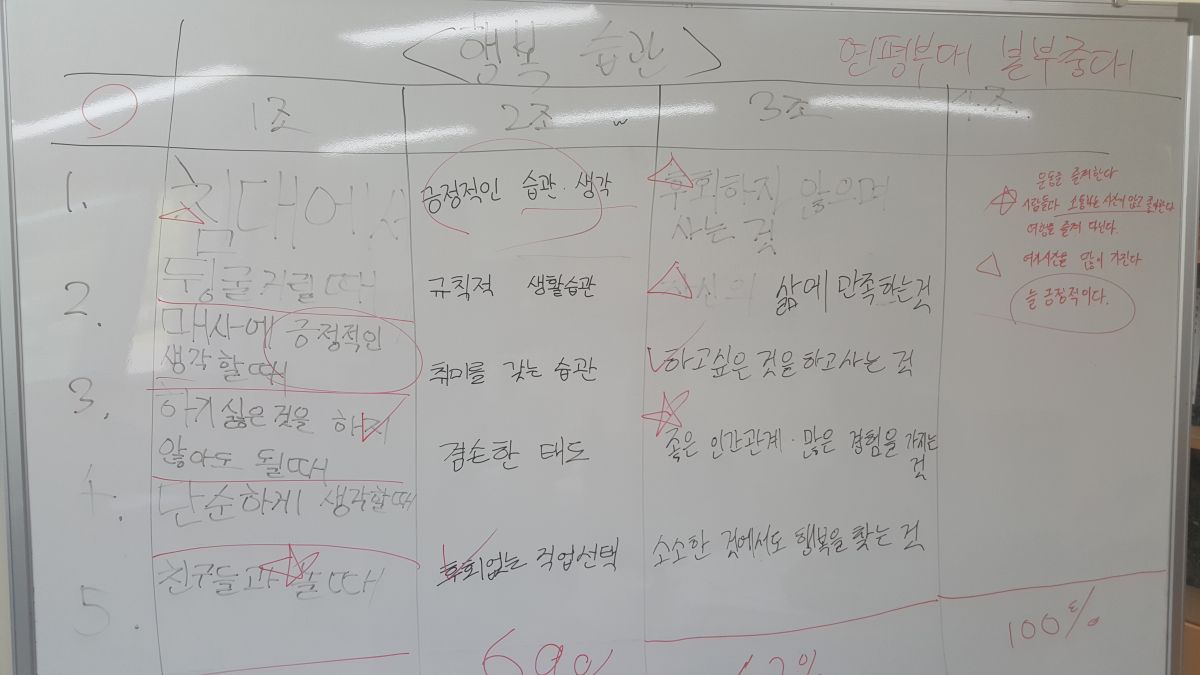 <행복 습관>
연평부대 본부중대
1조 2조 3조 4조
1.
침대에서
뒹굴거릴때
긍정적인 습관·생각
후회하지 않으며
사는 것
운동을 즐겨한다
사람들과 소통하는
여행을 즐겨 다닌다.
2.
매사에 긍정적인
생각할때
규칙적 생활습관
자신의 삶에 만족하는것
여가시간을 많이 가진다
늘 긍정적이다.
3.
하기싫은것을 하지
않아도 될때
취미를 갖는 습관
하고싶은 것을 하고사는 것
4.
단순하게 생각할때
겸손한 태도
좋은 인간관계·많은 경험을 가지는
것
5.
친구들과 할때
후회없는 직업선택
소소한 것에서도 행복을 찾는 것
100%